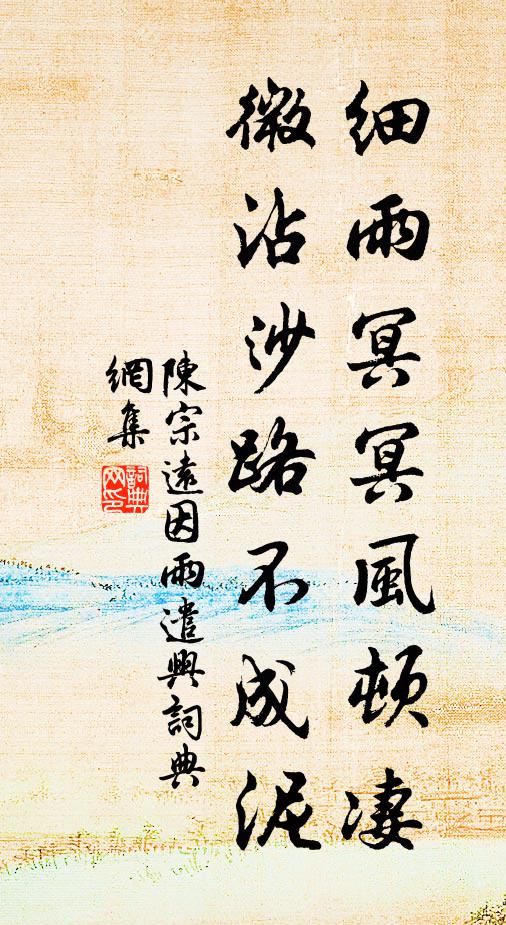 細雨冥冥風頓凄
微沾沙路不成泥
陳宗遠因雨遣興詞典
網集
詞典
网印